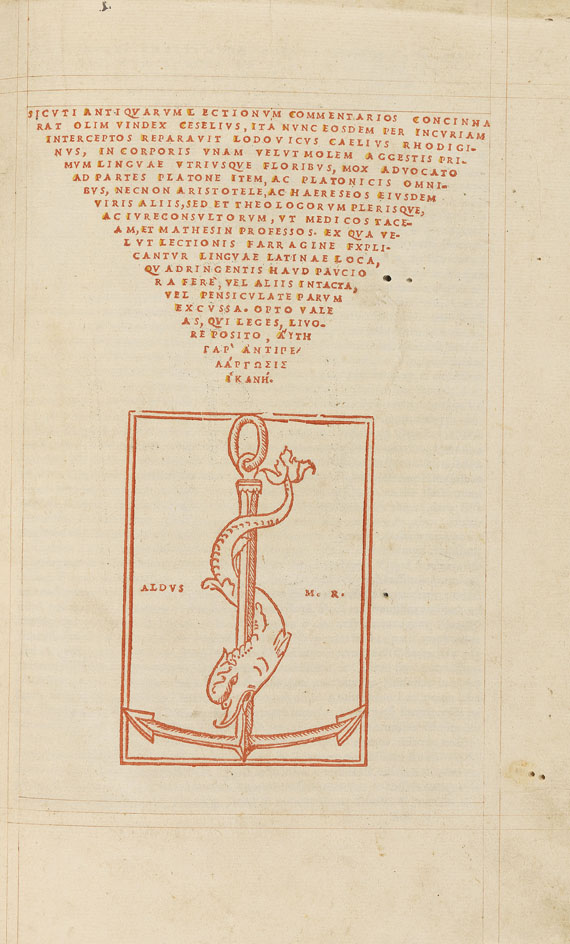 SICVTI ANTIQVARVM LECTIONVM COMMENTARIOS CONCINNA
RAT OLIM VINDEX CESELIVS, ITA NVNC EOSDEM PER INCVRIAM
INTERCEPTOS REPARAVIT LODOVICVS CAELIVS RHODIGI-
NVS, IN CORPORIS VNAM VELVT MOLEM AGGESTIS PRI-
MVM LINGVAE VTRIVSQVE FLORIBVS, MOX ADVOCATO
AD PARTES PLATONE ITEM, AC PLATONICIS OMNI-
BVS, NECNON ARISTOTELE, AC HAERESEOS EIVSDEM
VIRIS ALIIS, SED ET THEOLOGORVM PLERISQVE,
AC IVRECONSVLTORVM, VT MEDICOS TACE-
AM, ET MATHESIN PROFESSOS. EX QVA VE-
LVT LECTIONIS FARRAGINE EXPLI-
CANTVR LINGVAE LATINAE LOCA,
QVADRINGENTIS HAVD PAVCIO
RA FERE, VEL ALIIS INTACTA,
VEL PENSICVLATE PARVM
EXCVSSA. OPTO VALE
AS, QVI LEGES, LIVO-
RE POSITO, ἈΥΤΗ
ΓΑΡ ἈΝΤΙΠΕ/
ΛΆΡΓΩΣΙΣ
ἹΚΑΝΉ.
ALDVS
M. R.